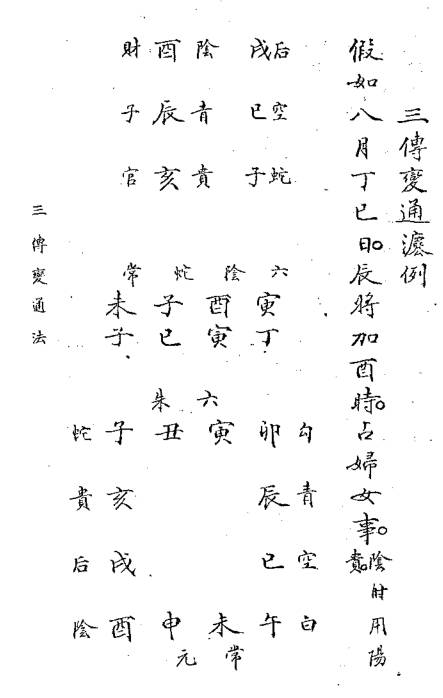 三傳變通瀍例
假如八月丁巳日。辰將加酉時。占婦女事。陰時用陽貴。
財 酉 陰 戌 后
子 辰 青 巳 空
官 亥 貴 子 蛇
常 蛇 陰 六
未 子 酉 寅
子 巳 寅 丁
朱 六
蛇 子 丑 寅 卯 勾
貴 亥 辰 青
后 戌 巳 空
陰 酉 申 未 午 白
元 常
三傳變通法